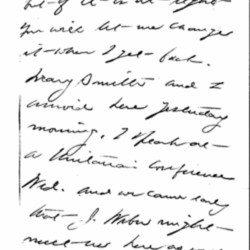 but if it is all right
you will let me change
it when I get back.
Mary Smith and I
arrived here yesterday
morning. I speak at
a Unitarian Conference
Wed. and we came early
that J. Wilber might
meet us here as